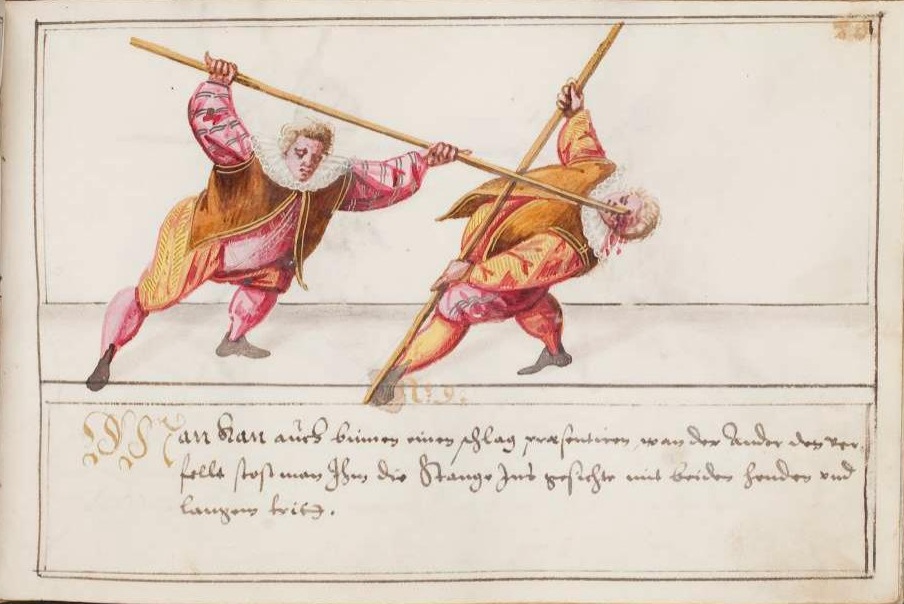 N: 9.
Man kan auch binnen einen schlag præsentiren, wan der Ander den ver-
felt stost man Ihm die Stange Ins gesichte mit beiden henden und
langem tritt.